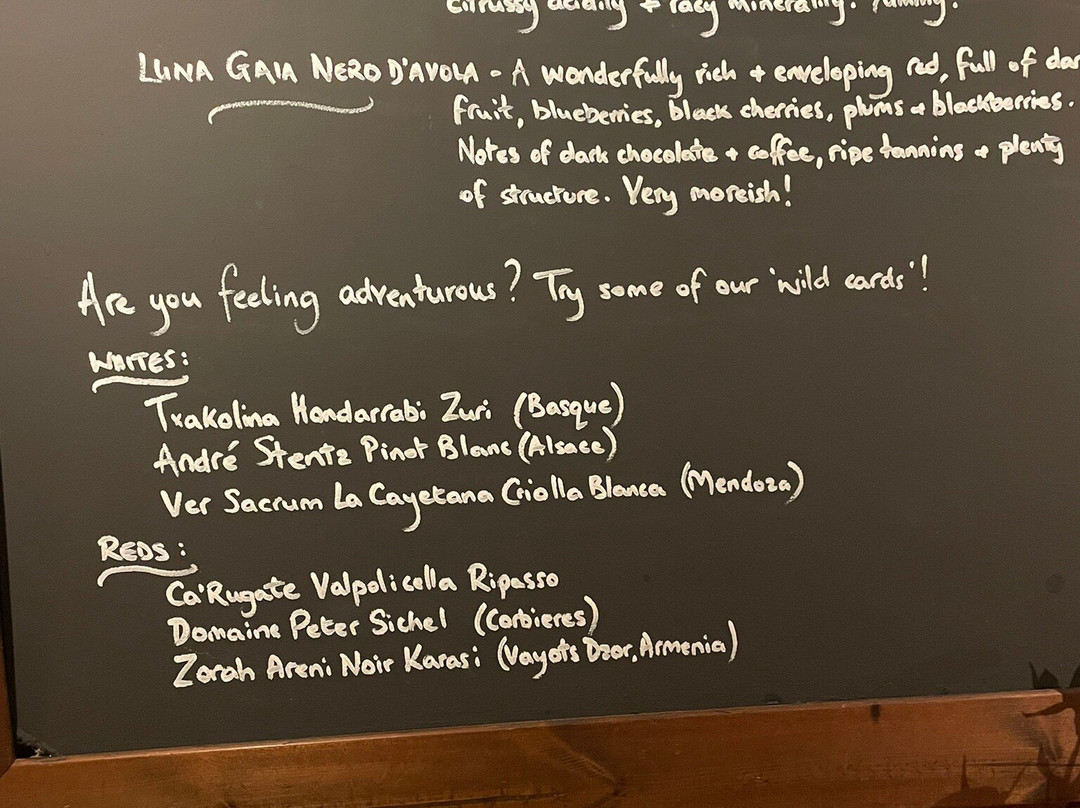 citrussy acidity + racy minerality. Yummy.
LUNA GAIA NERO D'AVOLA - A wonderfully rich + enveloping red, full of dar
fruit, blueberries, black cherries, plums + blackberries.
Notes of dark chocolate + coffee, ripe tannins + plenty
of structure. Very moreish!
Are you feeling adventurous? Try some of our 'wild cards'!
WHITES:
Txakolina Hondarrabi Zuri (Basque)
André Stentz Pinot Blanc (Alsace)
Ver Sacrum La Cayetana Criolla Blanca (Mendoza)
REDS:
Ca'Rugate Valpolicella Ripasso
Domaine Peter Sichel (Corbieres)
Zorah Areni Noir Karasi (Vayots Dzor, Armenia)